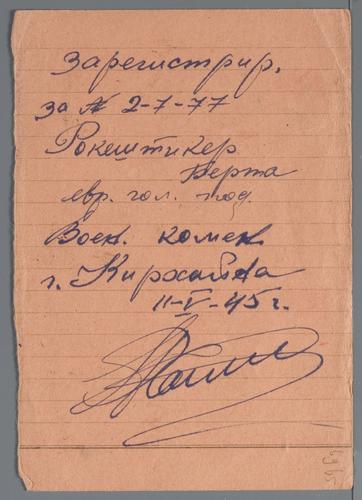 Зарегистрир.
за № 2-7-77
Рокештикер
Берта
евр. гол. под.
Воен. комен.
г. Кирхайна
11-V-45 г.